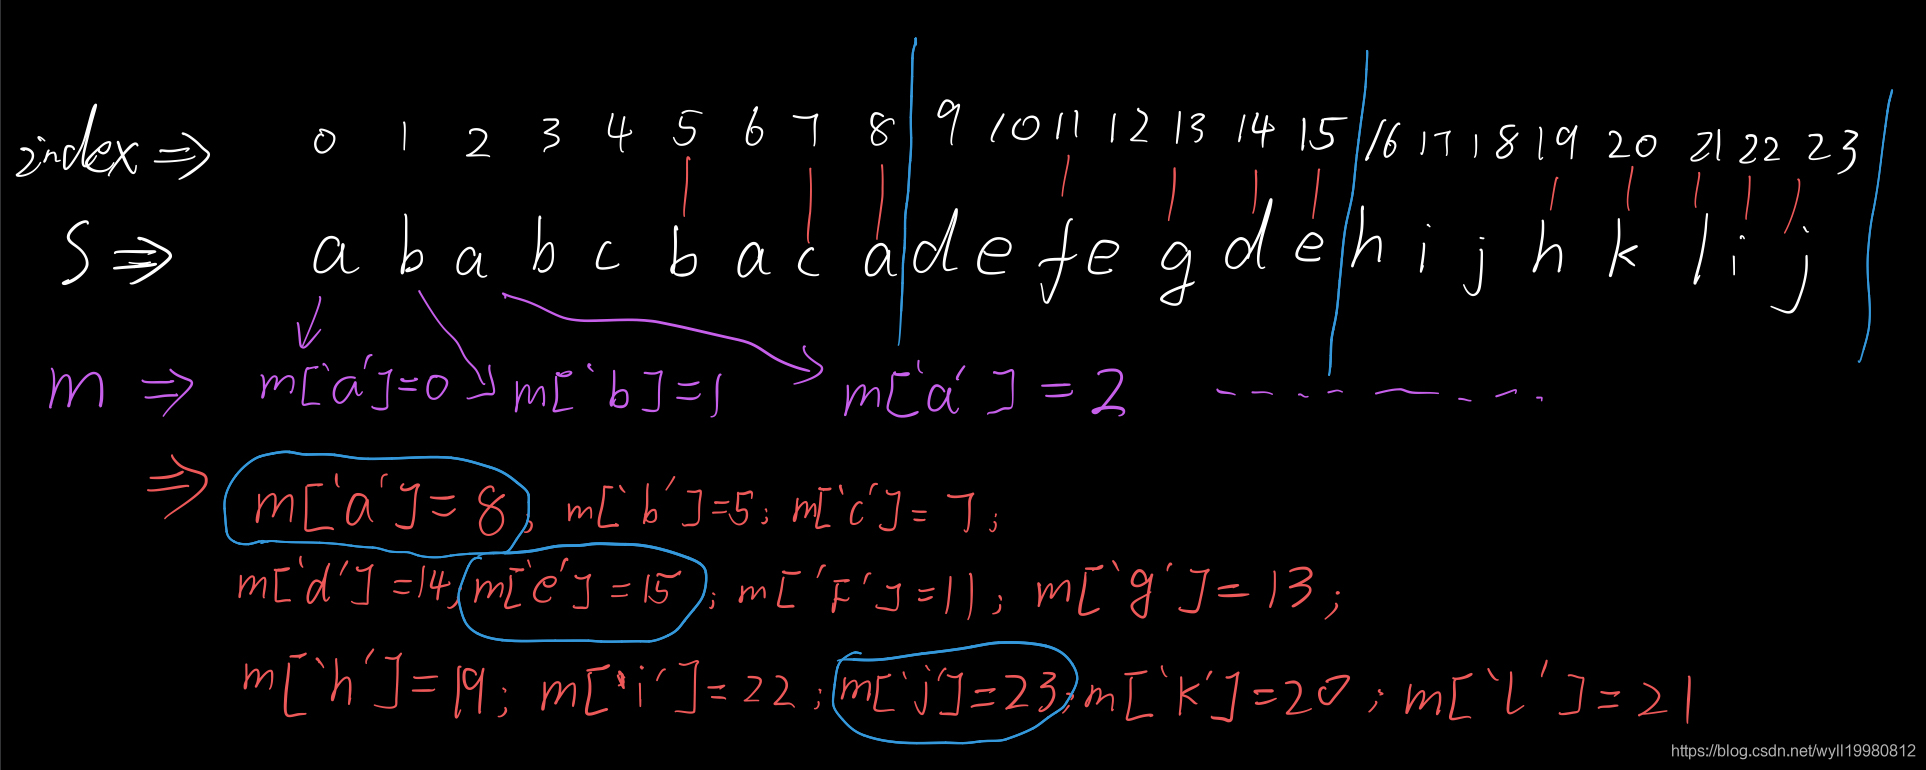 index⇒ 0 1 2 3 4 5 6 7 8 9 10 11 12 13 14 15 16 17 18 19 20 21 22 23
S⇒ a b a b c b a c a d e f e g d e h i j h k l i j
m⇒ m['a']=0 m['b]=1 m['a']=2 ------
⇒ m['a']=8; m['b']=5; m['c']=7;
m['d']=14, m['e']=15; m['F']=11; m['g']=13;
m['h']=19; m['i']=22; m['j']=23; m['k']=20; m['l']=21
https://blog.csdn.net/wyll19980812